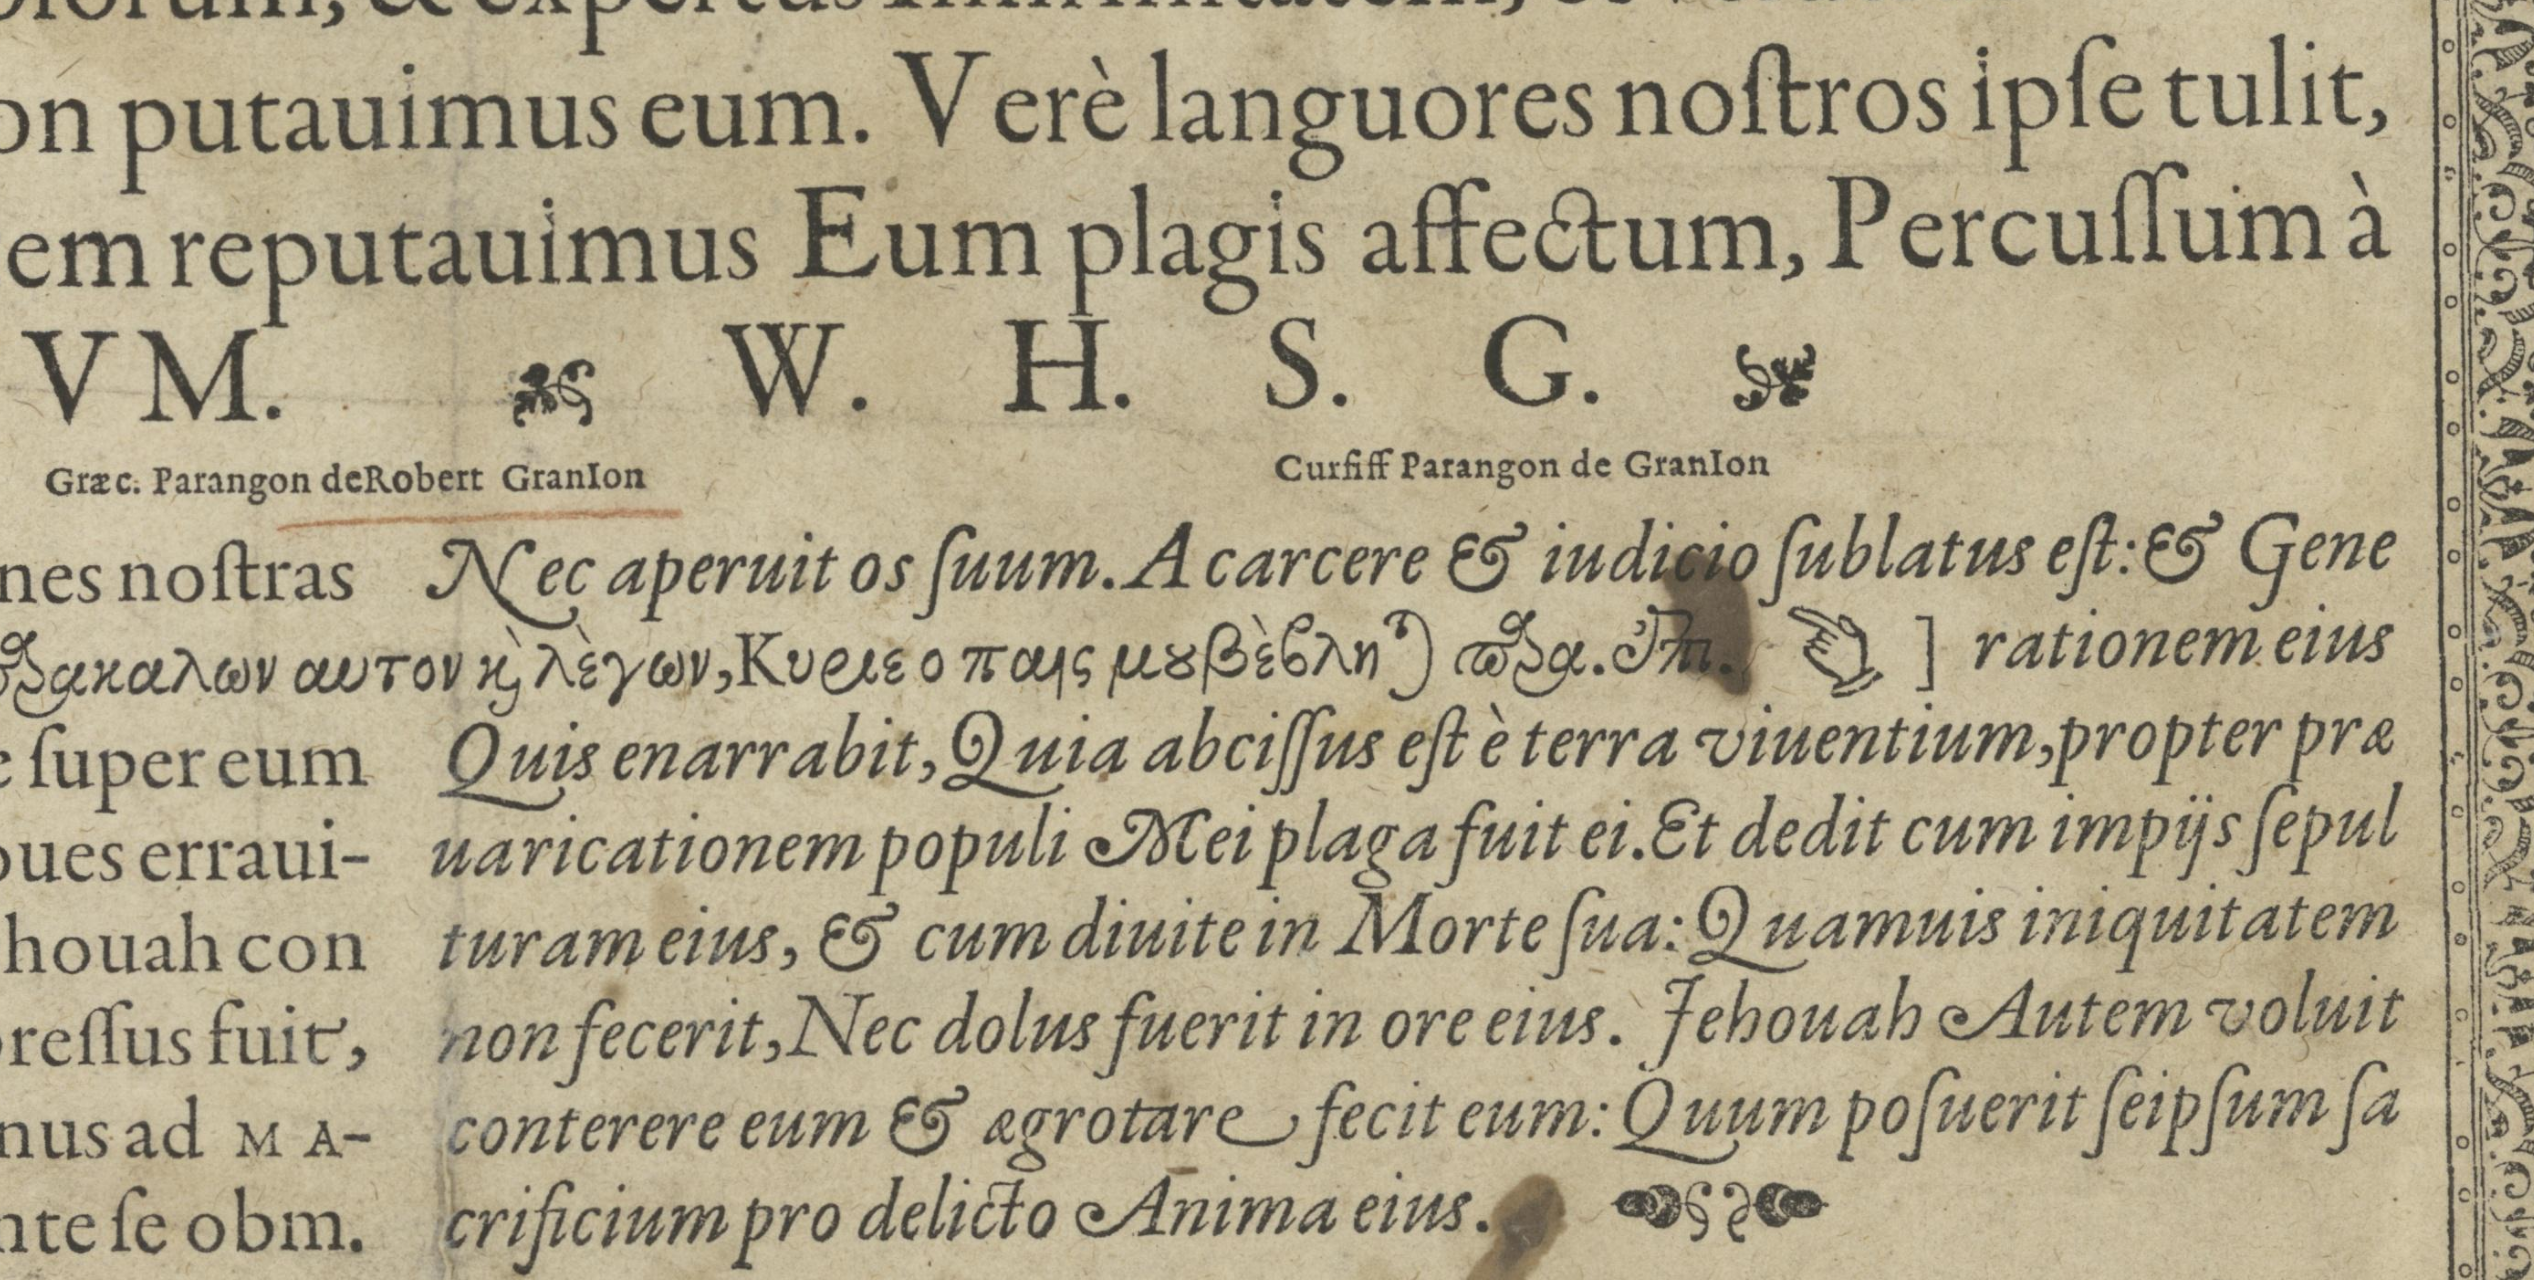 on putauimus eum. Verè languores noſtros ipſe tulit,
em reputauimus Eum plagis affectum, Percuſſum à
VM. W. H. S. G.
Græc. Parangon deRobert GranIon
Curſiff Parangon de GranIon
nes noſtras
Nec aperuit os ſuum. A carcere & iudicio ſublatus eſt: & Gene
αυτον κ̀ λὲγων, Κυριε ο παις μου βὲβλη ] rationem eius
ſuper eum
Quis enarrabit, Quia abciſſus eſt è terra viuentium, propter præ
oues erraui-
uaricationem populi Mei plaga fuit ei. Et dedit cum impijs ſepul
houah con
turam eius, & cum diuite in Morte ſua: Quamuis iniquitatem
preſſus fuit,
non fecerit, Nec dolus fuerit in ore eius. Jehouah Autem voluit
nus ad MA-
conterere eum & ægrotare fecit eum: Quum poſuerit ſeipſum ſa
nte ſe obm.
crificium pro delicto Anima eius.